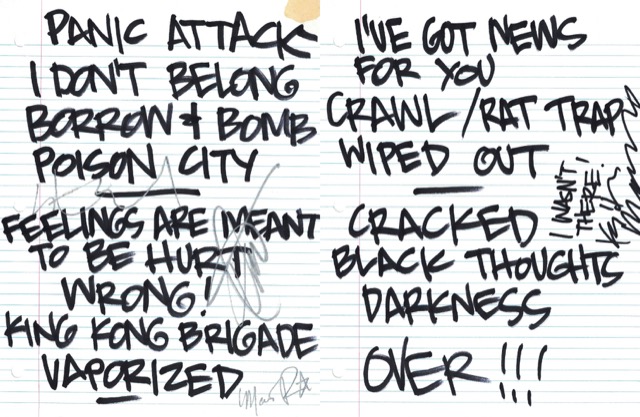 PANIC ATTACK
I DON'T BELONG
BORROW & BOMB
POISON CITY
FEELINGS ARE MEANT
TO BE HURT
WRONG!
KING KONG BRIGADE
VAPORIZED
I'VE GOT NEWS
FOR YOU
CRAWL/RAT TRAP
WIPED OUT
I WASN'T
THERE!
CRACKED
BLACK THOUGHTS
DARKNESS
OVER!!!